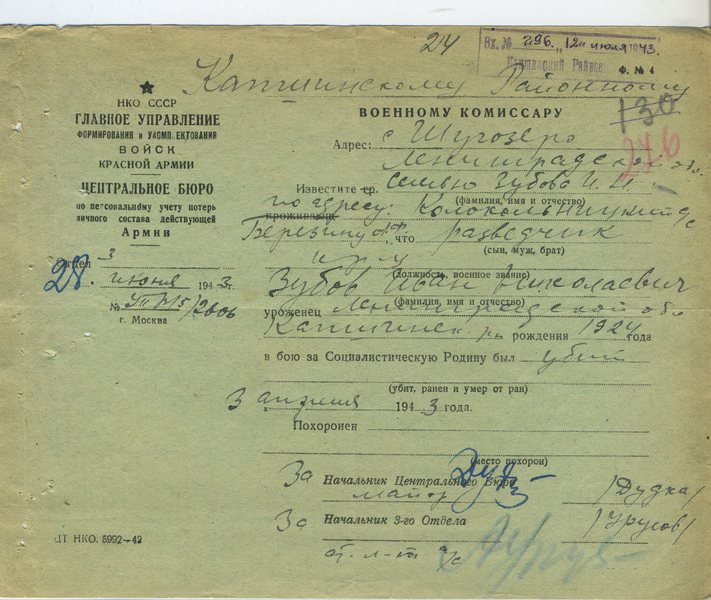 24
Вх. № 296 "12" июля 1943.
Капшинский Райвое
Ф. № 4
Капшинскому Районному
НКО СССР
ГЛАВНОЕ УПРАВЛЕНИЕ
ФОРМИРОВАНИЯ и УКОМП ЕКТОВАНИЯ
ВОЙСК
КРАСНОЙ АРМИИ
ЦЕНТРАЛЬНОЕ БЮРО
по персональному учету потерь
личного состава действующей
Армии
Отдел 3
28. июня 1943г.
№ /2006
г. Москва
ВОЕННОМУ КОМИССАРУ
130
246
Адрес: с Шугозеро
Ленинградской обл.
Известите гр. Семью Зубова И. Н.
(фамилия, имя и отчество)
по адресу:
проживающ
что разведчик
(сын, муж, брат)
(должность, военное звание)
Зубов Иван Николаевич
(фамилия, имя и отчество)
уроженец Ленинградской обл
рождения 1924 года
в бою за Социалистическую Родину был убит
(убит, ранен и умер от ран)
3 апреля 1943 года.
Похоронен
(место похорон)
За Начальник Центрального Бюро
майор /Дудка/
За Начальник 3-го Отдела /Урусов/
ст. л-т а/с
ЦТ НКО. 5992—42